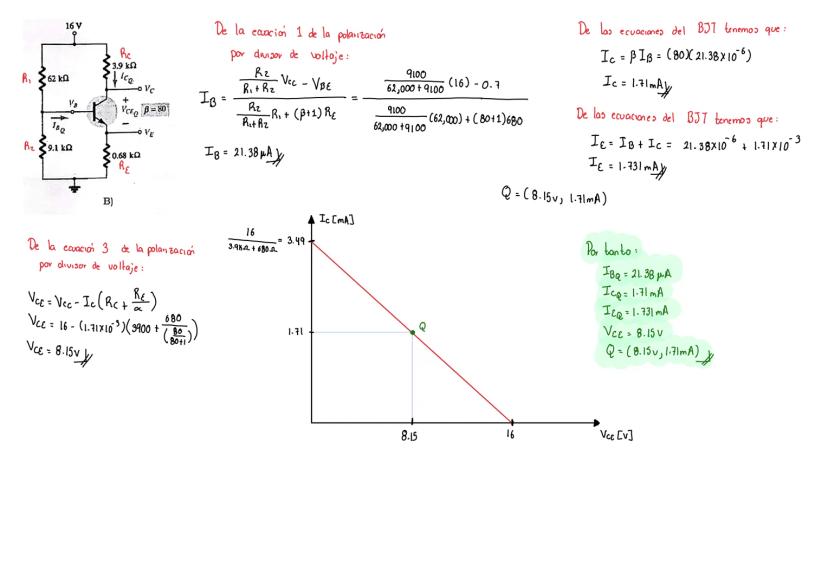 16 V
R_C
3.9 kΩ
R_1
62 kΩ
I_CQ
V_C
V_B
+
V_CEQ
β = 80
I_BQ
−
V_E
R_2
9.1 kΩ
0.68 kΩ
R_E
B)
De la ecuación 1 de la polarización
por divisor de voltaje:
I_B = (R_2/(R_1+R_2) V_CC − V_BE) / (R_2/(R_1+R_2) R_1 + (β+1) R_E) = (9100/(62,000+9100) (16) − 0.7) / (9100/(62,000+9100) (62,000) + (80+1)680)
I_B = 21.38 μA
De las ecuaciones del BJT tenemos que:
I_C = β I_B = (80)(21.38×10^-6)
I_C = 1.71mA
De las ecuaciones del BJT tenemos que:
I_E = I_B + I_C = 21.38×10^-6 + 1.71×10^-3
I_E = 1.731mA
Q = (8.15v, 1.71mA)
De la ecuación 3 de la polarización
por divisor de voltaje:
V_CE = V_CC − I_C (R_C + R_E/α)
V_CE = 16 − (1.71×10^-3)(3900 + 680/(80/(80+1)))
V_CE = 8.15v
I_C [mA]
16/(3.9kΩ + 680Ω) = 3.49
1.71
Q
8.15
16
V_CE [v]
Por tanto:
I_BQ = 21.38 μA
I_CQ = 1.71 mA
I_EQ = 1.731mA
V_CE = 8.15v
Q = (8.15v, 1.71mA)